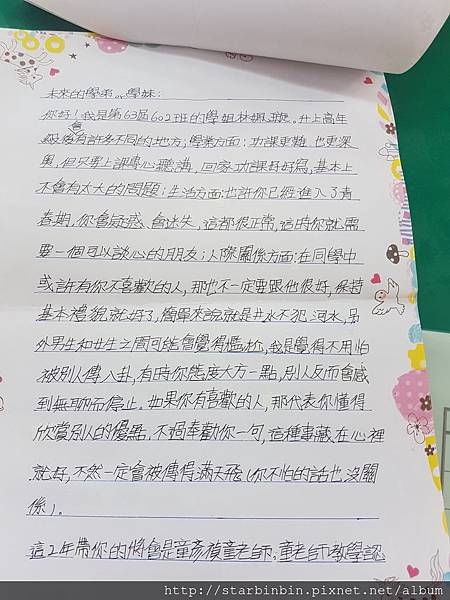 未來的學弟or學妹:
你好!我是第63屆602班的學姐林姵璇。升上高年
級後會有許多不同的地方;學業方面:功課更難、也更深
奧,但只要上課專心聽講,回家功課好好寫,基本上
不會有太大的問題;生活方面:也許你已經進入了青
春期,你會疑惑、會迷失,這都很正常,這時你就需
要一個可以談心的朋友;人際關係方面:在同學中
或許有你不喜歡的人,那也不一定要跟他很好,保持
基本禮貌就好了,簡單來說就是井水不犯河水,另
外男生和女生之間可能會覺得尷尬,我是覺得不用怕
被別人傳八卦,有時你態度大方一點,別人反而會感
到無聊而停止。如果你有喜歡的人,那代表你懂得
欣賞別人的優點,不過奉勸你一句,這種事藏在心裡
就好,不然一定會被傳得滿天飛(你不怕的話也沒關
係)。
這2年帶你的將會是童彥禎童老師。童老師教學認
http://starbinbin.pixnet.net/album